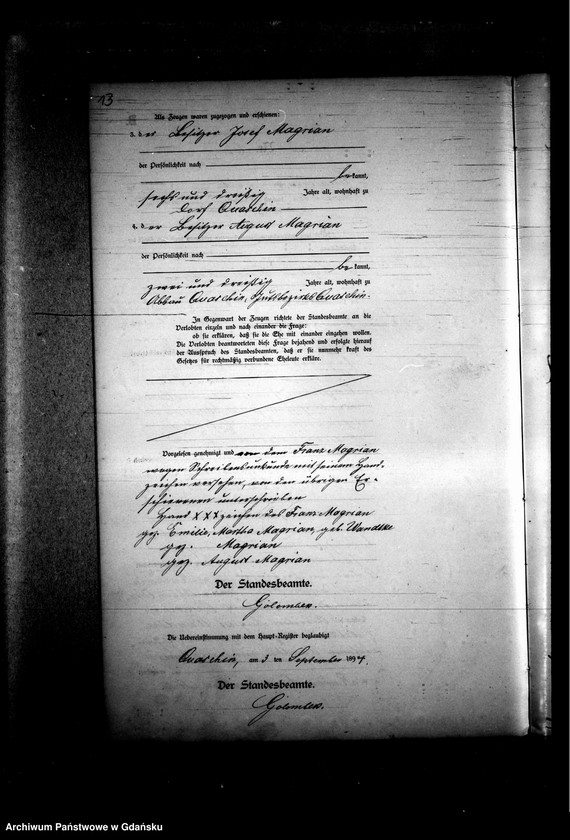 13
Als Zeugen waren zugezogen und erschienen:
3. der Besitzer Josef Magrian
der Persönlichkeit nach
bekannt,
sechs und dreißig Jahre alt, wohnhaft zu
Dorf Quaschin
4. der Besitzer August Magrian
der Persönlichkeit nach
bekannt,
zwei und dreißig Jahre alt, wohnhaft zu
Abbau Quaschin, Gutsbezirk Quaschin.
In Gegenwart der Zeugen richtete der Standesbeamte an die
Verlobten einzeln und nach einander die Frage:
ob sie erklären, daß sie die Ehe mit einander eingehen wollen.
Die Verlobten beantworteten diese Frage bejahend und erfolgte hierauf
der Ausspruch des Standesbeamten, daß er sie nunmehr kraft des
Gesetzes für rechtmäßig verbundene Eheleute erkläre.
Vorgelesen, genehmigt und von dem Franz Magrian
wegen Schreibensunkunde mit seinem Hand-
zeichen versehen, von den übrigen Er-
schienenen unterschrieben
Hand XXX zeichen des Franz Magrian
gez. Emilie, Martha Magrian, geb. Wandtke
gez. Magrian
gez. August Magrian
Der Standesbeamte.
Golombek.
Die Uebereinstimmung mit dem Haupt-Register beglaubigt
Quaschin, am 3 ten September 1894.
Der Standesbeamte.
Golombek.
Archiwum Państwowe w Gdańsku